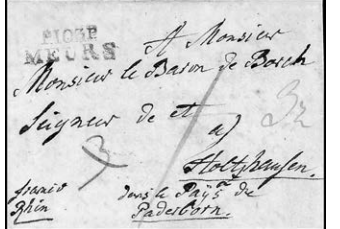 P103P
MEURS
A Monsieur
Monsieur le Baron de Bosch
Seigneur de et
a)
Holthausen.
franco
Rhin
dans le Paÿs de
Paderborn.